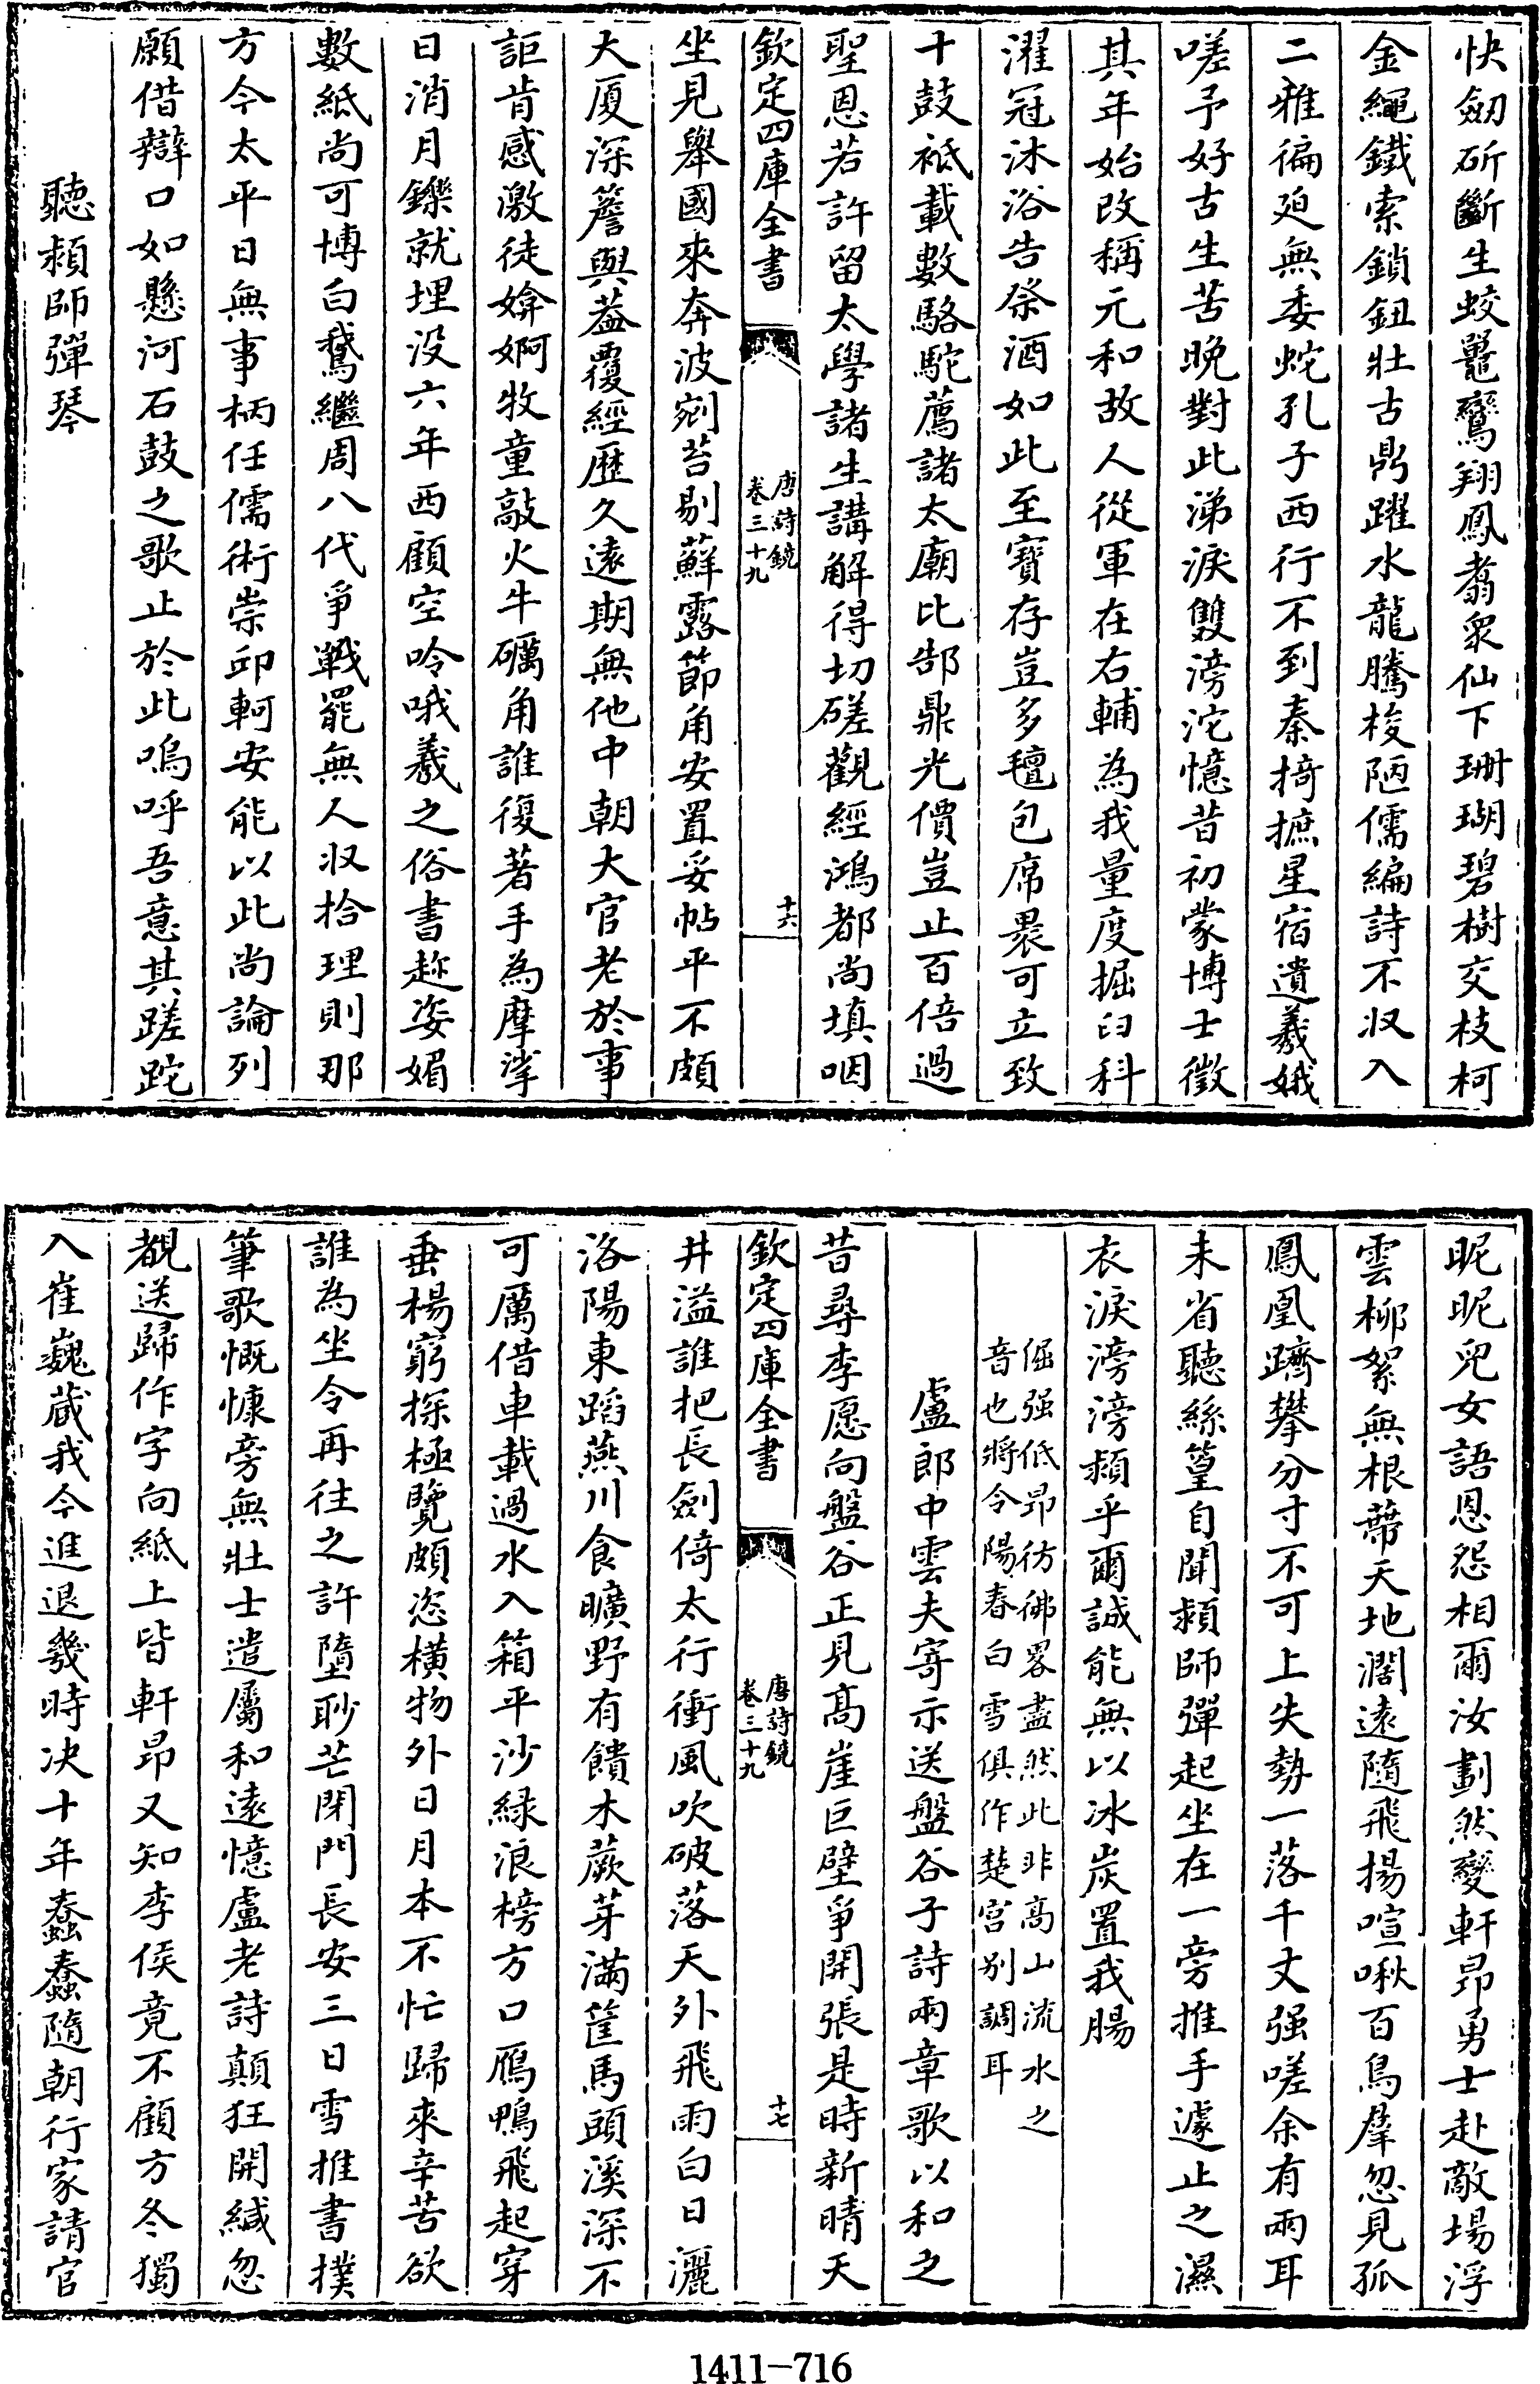 快劒斫斷生蛟鼉鸞翔鳳翥衆仙下珊瑚碧樹交枝柯
金繩鐵索鎖鈕壯古鼎躍水龍騰梭陋儒編詩不收入
二雅徧廹無委蛇孔子西行不到秦掎摭星宿遺羲娥
嗟予好古生苦晚對此涕淚雙滂沱憶昔初蒙博士徵
其年始改稱元和故人從軍在右輔為我量度掘臼科
濯冠沐浴告祭酒如此至寶存豈多氊包席裹可立致
十鼓袛載數駱駝薦諸太廟比郜鼎光價豈止百倍過
聖恩若許留太學諸生講解得切磋觀經鴻都尚填咽
欽定四庫全書
唐詩鏡
卷三十九
十六
坐見舉國來奔波剜苔剔蘚露節角安置妥帖平不頗
大厦深簷與葢覆經歷久遠期無他中朝大官老於事
詎肯感激徒媕婀牧童敲火牛礪角誰復著手為摩挲
日消月鑠就埋没六年西顧空吟哦羲之俗書趂姿媚
數紙尚可博白鵞繼周八代爭戰罷無人收拾理則那
方今太平日無事柄任儒術崇邱軻安能以此尚論列
願借辯口如懸河石鼓之歌止於此嗚呼吾意其蹉跎
聽頛師彈琴
昵昵兒女語恩怨相爾汝劃然變軒昂勇士赴敵場浮
雲柳絮無根蔕天地濶遠隨飛揚喧啾百鳥羣忽見孤
鳳凰躋攀分寸不可上失勢一落千丈强嗟余有兩耳
未省聽絲篁自聞頛師彈起坐在一旁推手遽止之濕
衣淚滂滂頛乎爾誠能無以冰炭置我腸
倔强低昻彷彿畧盡然此非高山流水之
音也將令陽春白雪俱作楚宫别調耳
盧郎中雲夫寄示送盤谷子詩兩章歌以和之
昔尋李愿向盤谷正見高崖巨壁爭開張是時新晴天
欽定四庫全書
唐詩鏡
卷三十九
十七
井溢誰把長劍倚太行衝風吹破落天外飛雨白日灑
洛陽東蹈燕川食曠野有饋木蕨芽滿筐馬頭溪深不
可厲借車載過水入箱平沙緑浪榜方口鴈鴨飛起穿
垂楊窮探極覽頗恣橫物外日月本不忙歸來辛苦欲
誰為坐令再往之許墮眇芒閉門長安三日雪推書撲
筆歌慨慷旁無壯士遣屬和遠憶盧老詩顛狂開緘忽
覩送歸作字向紙上皆軒昂又知李侯竟不顧方冬獨
入崔巍蔵我今進退幾時决十年蠢蠢隨朝行家請官
1411-716